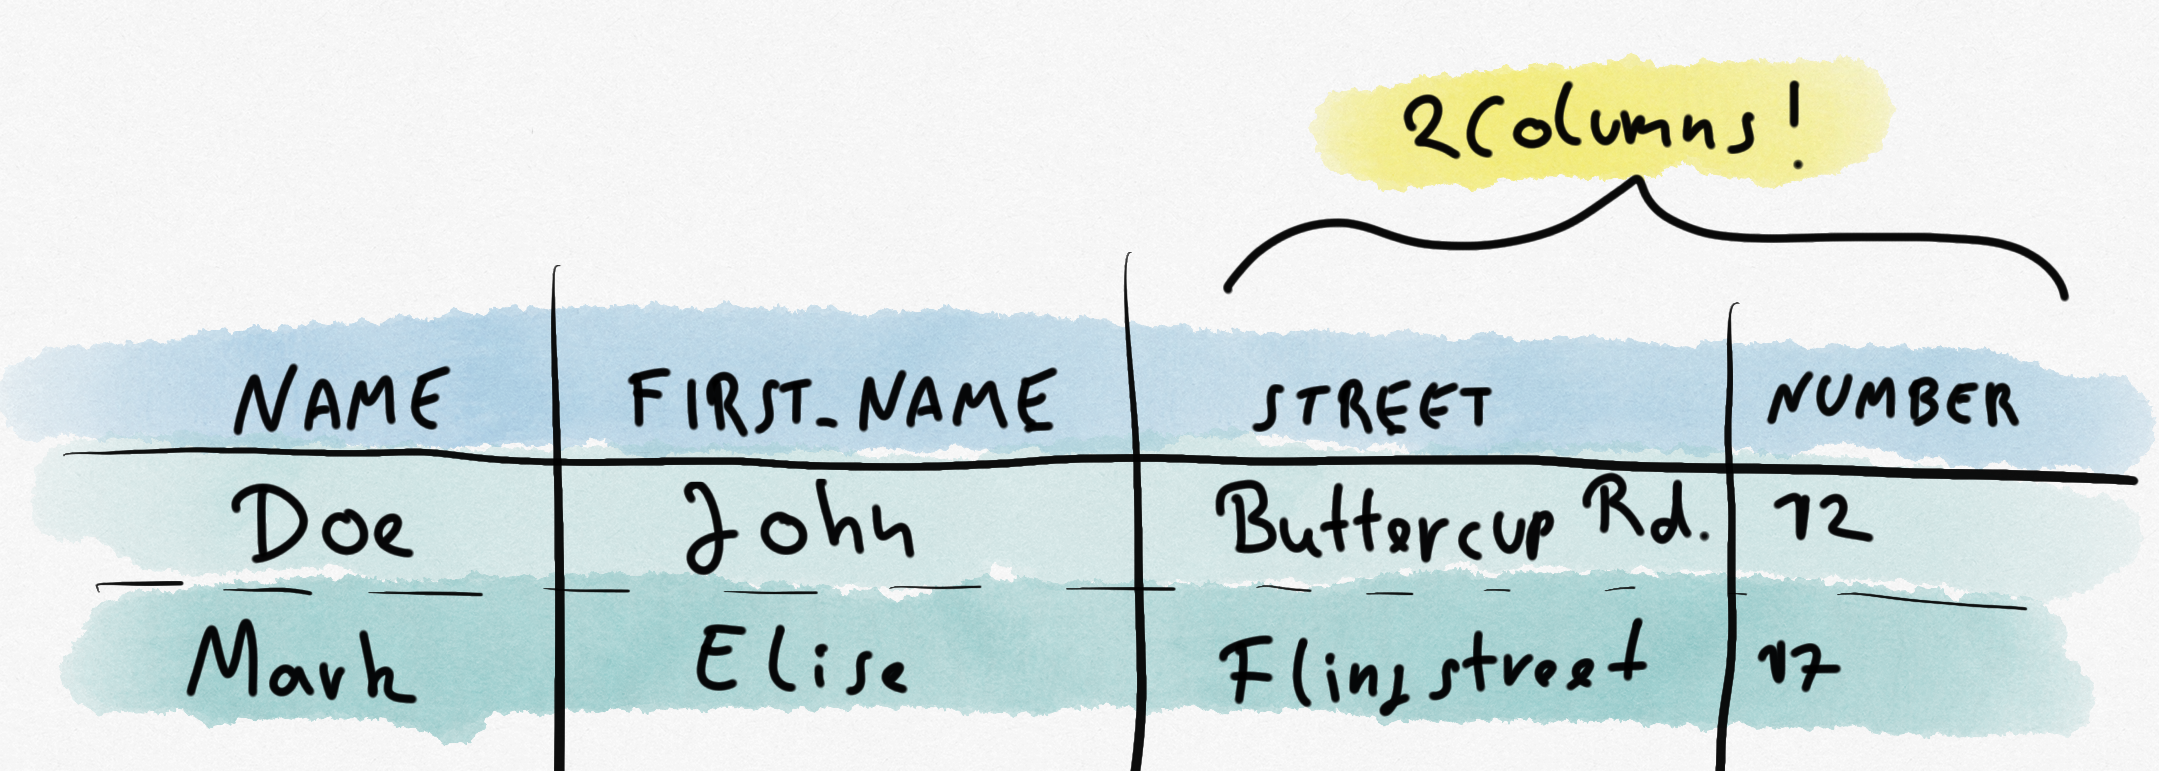 2 Columns!
NAME FIRST_NAME STREET NUMBER
Doe John Buttercup Rd. 12
Mark Elise Flingstreet 17